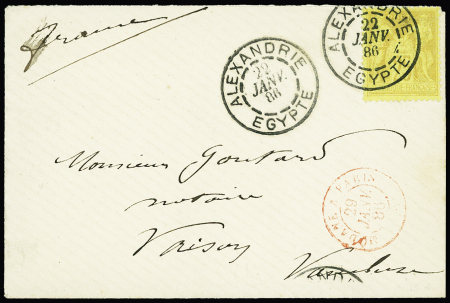 France
ALEXANDRIE
22
JANV.
86
EGYPTE
ALEXANDRIE
22
JANV.
86
EGYPTE
Monsieur Goutard
notaire
Vaison
Vaucluse
PARIS
29
JANV
86
MODANE